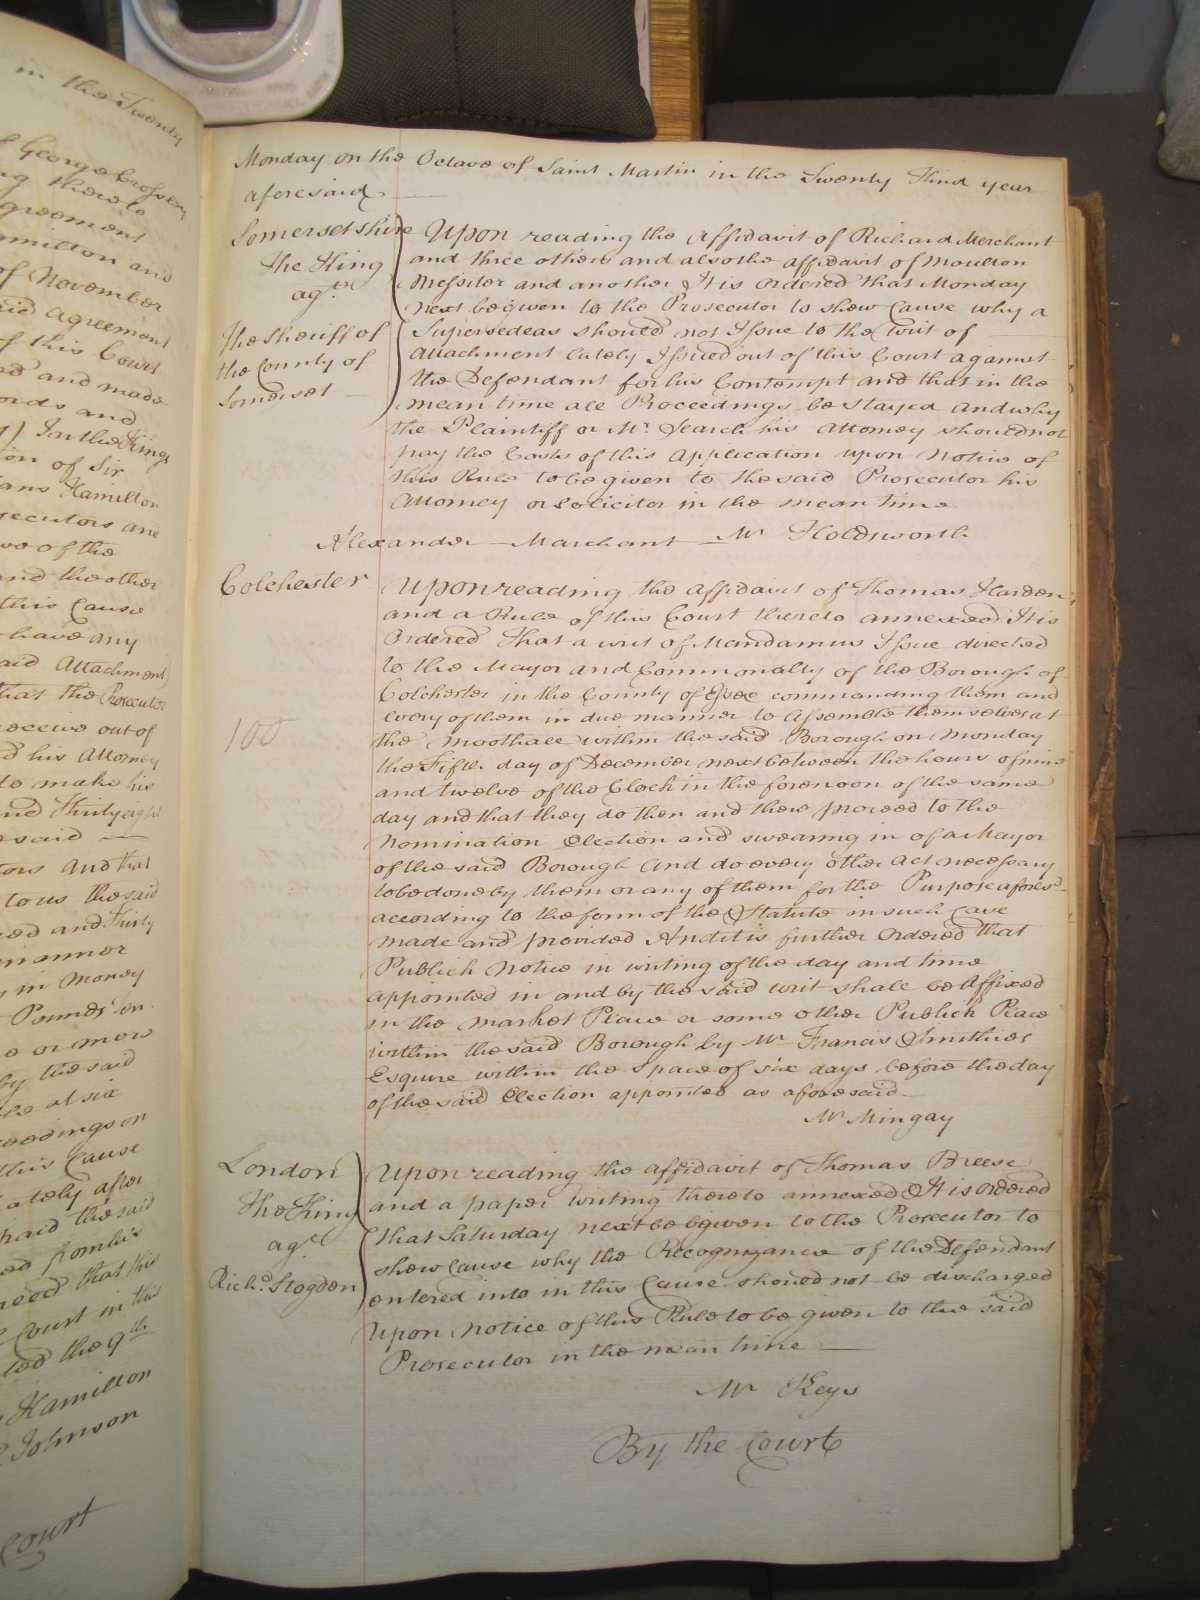 in the Twenty
George Crossley
ing thereto
agreement
Hamilton and
of November
said agreement
of this Court
and made
ords and
In the Kings
ion of Sir
ians Hamilton
osecutors and
of the
and the other
this Cause
have any
said Attachment
that the Prosecutor
receive out of
his Attorney
to make his
and Thirty eight
said
tors And that
to us the said
and Thirty
manner
in money
Pounds
or more
by the said
at six
ceedings on
this Cause
ately after
paid the said
from his
reed that this
Court in this
the 9th
Hamilton
Johnson
Court
Monday on the Octave of Saint Martin in the Twenty Third year
aforesaid
Somersetshire
The King
agt
The Sheriff of
the County of
Somerset
Upon reading the Affidavit of Richard Merchant
and three others and also the affidavit of Moulton
Messiter and another It is ordered that Monday
next be given to the Prosecutor to shew Cause why a
Supersedeas should not Issue to the writ of
Attachment lately Issued out of this Court against
the Defendant for his Contempt and that in the
mean time all Proceedings be stayed and why
the Plaintiff or Mr. Search his Attorney should not
pay the Costs of this Application upon Notice of
this Rule to be given to the said Prosecutor his
Attorney or Solicitor in the mean time
Alexander Marchant Mr Holdsworth
Colchester
Upon reading the affidavit of Thomas Harden
and a Rule of this Court thereto annexed It is
Ordered That a writ of Mandamus Issue directed
to the Mayor and Commonalty of the Borough of
Colchester in the County of Essex commanding them and
every of them in due manner to Assemble themselves at
the Moothall within the said Borough on Monday
the Fifth day of December next between the hours of nine
and twelve of the Clock in the forenoon of the same
day and that they do then and there proceed to the
100
Nomination Election and swearing in of a Mayor
of the said Borough And do every other Act necessary
to be done by them or any of them for the Purpose aforesd
according to the form of the Statute in such case
made and provided And it is further Ordered that
Publick Notice in writing of the day and time
appointed in and by the said writ shall be Affixed
in the Market Place or some other Publick Place
within the said Borough by Mr Francis Smithies
Esquire within the space of six days before the day
of the said Election appointed as aforesaid
Mr Mingay
London
The King
agt
Richd. Stogden
Upon reading the affidavit of Thomas Breese
and a paper writing thereto annexed It is ordered
that Saturday next be given to the Prosecutor to
shew Cause why the Recognizance of the Defendant
entered into in this Cause should not be discharged
Upon Notice of this Rule to be given to the said
Prosecutor in the mean time
Mr Keys
By the Court